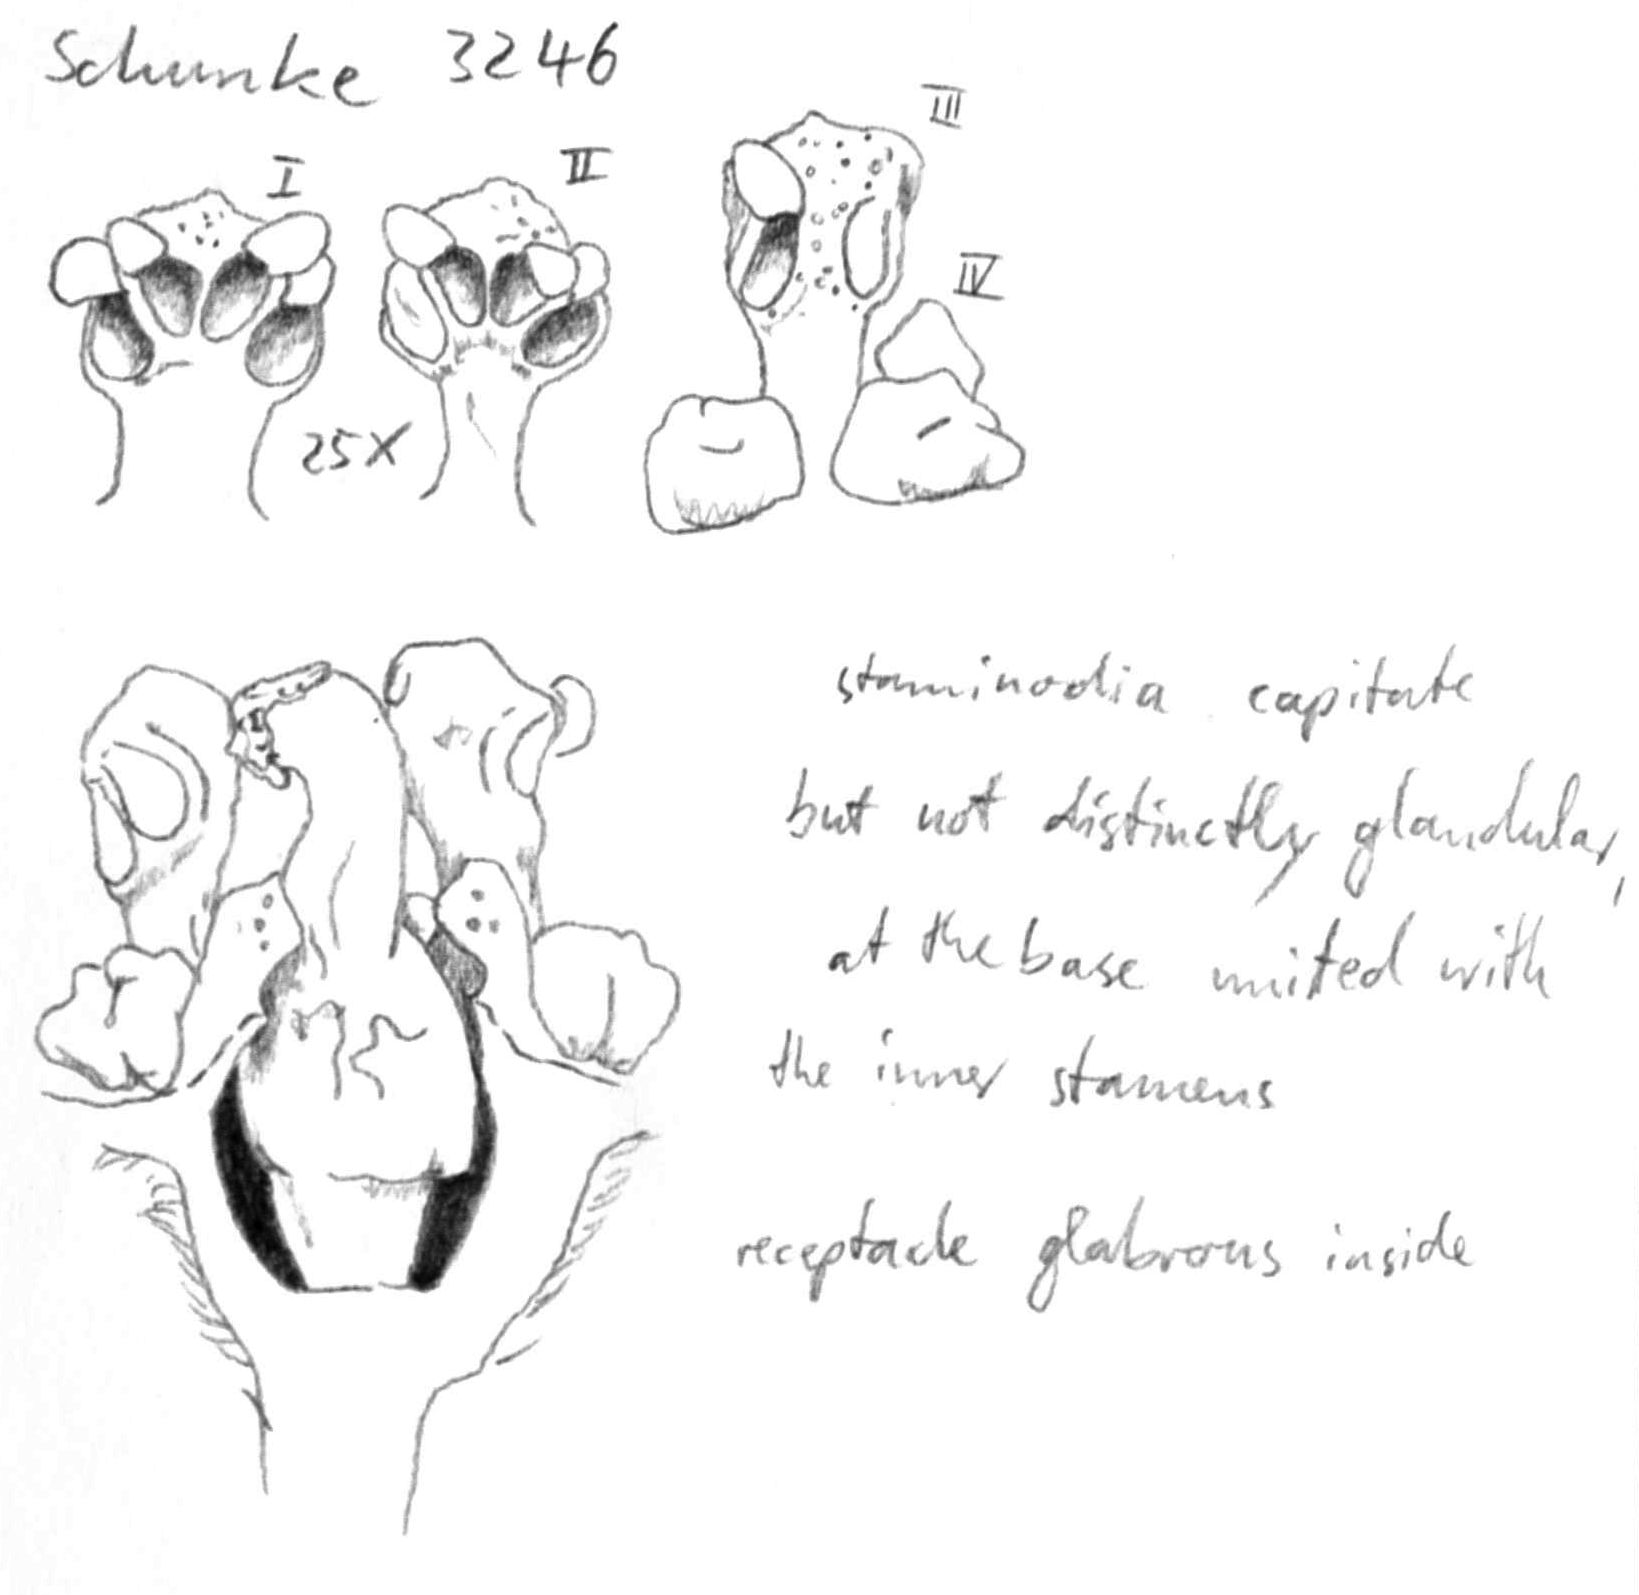 Schunke 3246
I
II
III
IV
25X
staminodia capitate
but not distinctly glandular,
at the base united with
the inner stamens
receptacle glabrous inside